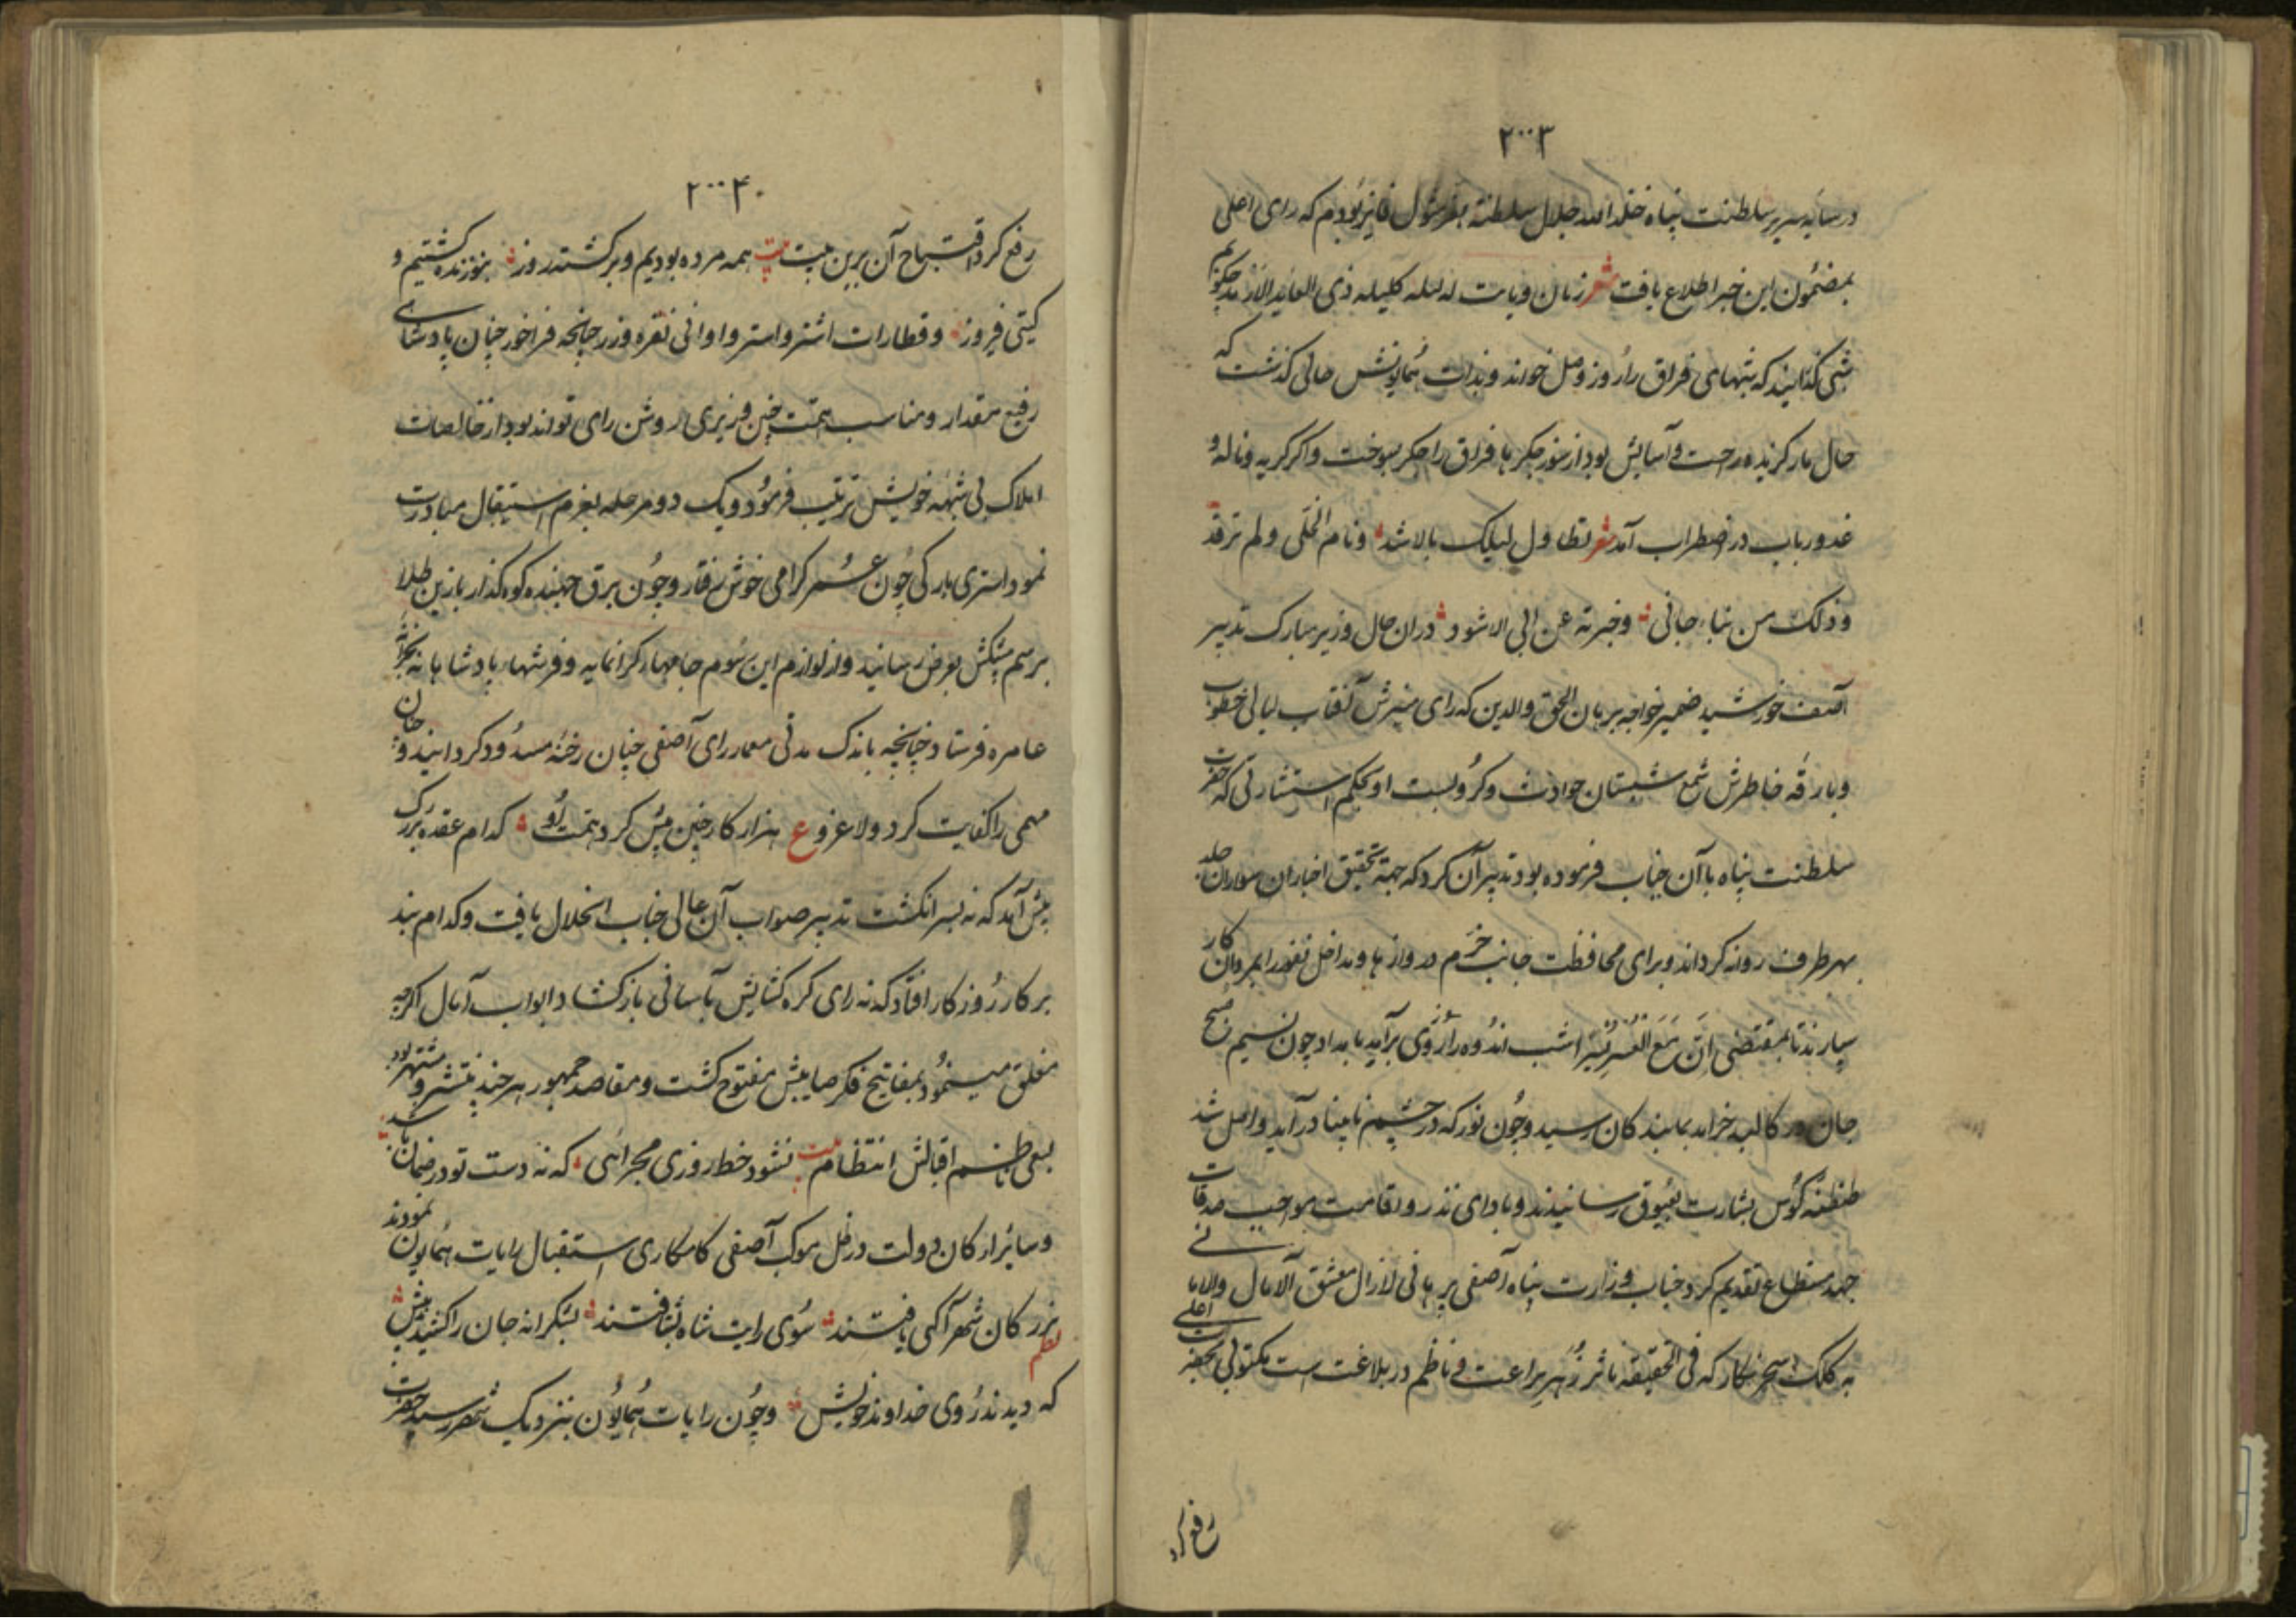 ۲۰۰۳
در سایه سریر سلطنت پناه خلد الله جلال سلطنته بقرمثول فایز بودم که رای اعلی
بمضمون این خبر اطلاع یافت شعر زمان وبات له لیله کلیله ذی العایر الارمد
شبی گذرانید که شبهای فراق را روز وصل خواند و بذات همایونش حالی گذشت که
حال مار گزیده راحت و آسایش بود از سوز جگر با فراق را جگر بسوخت و اگر گریه و ناله و
در اضطراب آمد شعر تطاول لیلک بالاثمد ونام الخلی ولم ترقد
وذلک من نباء جانی وخبرته عن ابی الاسود دران حال وزیر مبارک تدبیر
آصف خورشید ضمیر خواجه برهان الحق والدین که رای منیرش آفتاب لیالی خطوب
وبارقه خاطرش شمع شبستان حوادث و کروبست او بحکم استشارتی که حضرت
سلطنت پناه با آن جناب فرموده بود تدبیر آن کرد که جهة تحقیق اخبار ان سواران جلد
بهر طرف روانه کرداند و برای محافظت جانب حزم دروازها و مداخل ثغور را بمردان کار
سپارند تا بمقتضی ان مع العسر یسرا شب اندوه را روزی برآید بامداد چون نسیم صبح
جان در کالبد خرامد بمابندگان رسید و چون نور که در چشم نابینا درآید واصل شد
طنطنه کوس بشارت بعیوق رسانیدند و بادای نذر و اقامت مواجب صدقات
جهد مستطاع تقدیم کرد جناب وزارت پناه آصفی برهانی لازال معشق الآمال والامانی
به کلک سحر نگار که فی الحقیقه ناثر زهر براعت و ناظم در بلاغت است مکتوبی بحضرت اعلی
رفع کرد
۲۰۰۴
رفع کرد افتتاح آن برین بیت بیت همه مرده بودیم و برگشته روز بتو زنده گشتیم و
گیتی فروز و قطارات اشتر و استر و اوانی نقره و زر چنانچه فراخور چنان پادشاهی
رفیع مقدار و مناسب همت چنین وزیری روشن رای تواند بود از خالصات
املاک بی شبهه خویش ترتیب فرمود و یک دو مرحله بعزم استقبال مبادرت
نمود استری بارگی چون عمر گرامی خوش رفتار و چون برق جهنده کوه گذار با زین طلا
برسم پیشکش بعرض رسانید و از لوازم این رسوم جامهاء گرانمایه و فرشهاء پادشاهانه بخزانه
عامره فرستاد چنانچه باندک مدتی معمار رای آصفی چنان رخنه مسدود گردانید و چنان
مهمی را کفایت کرد ولا غرو ع هزار کار چنین پیش کرد همت او کدام عقده بزرگ
پیش آمد که نه بسر انگشت تدبیر صواب آن عالی جناب انحلال یافت و کدام بند
بر کار روزگار افتاد که نه رای گره گشایش بآسانی باز گشاد ابواب آمال اگرچه
مغلق مینمود بمفاتیح فکر صایبش مفتوح گشت و مقاصد جمهور هر چند منتشر و مشتهر بود
بسعی ناظم اقبالش انتظام بیت نشود خط روزی مجرائی که نه دست تو در ضمان باشد
و سائر ارکان دولت در ظل موکب آصفی کامکاری استقبال رایات همایون نمودند
نظم بزرگان شهر آگهی یافتند سوی رایت شاه بشتافتند بشکرانه جان را کشیدند پیش
که دیدند روی خداوند خویش و چون رایات همایون بنزدیک شهر رسید حضرت